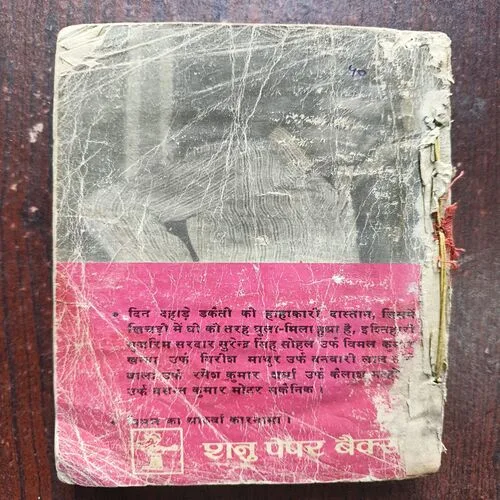 40
• दिन दहाड़े डकैती की हाहाकारी दास्तान, जिसमें
खिचड़ी में घी की तरह घुला-मिला हुआ है, इश्तिहारी
मुजरिम सरदार सुरेन्द्र सिंह सोहल उर्फ विमल कुमार
खन्ना उर्फ गिरीश माथुर उर्फ बनवारी लाल
वाला उर्फ रमेश कुमार शर्मा उर्फ कैलाश
उर्फ बसन्त कुमार मोटर मकैनिक।
• विमल का आठवां कारनामा।
शानू पेपर बैक्स